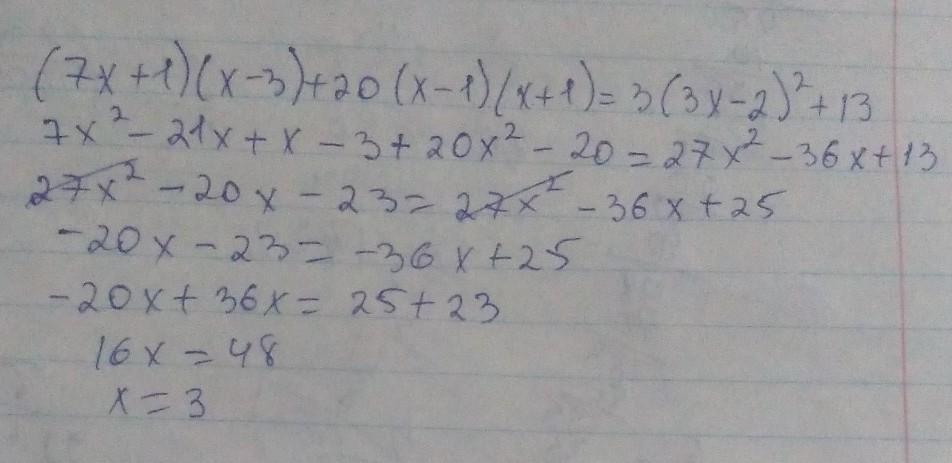 (7x+1)(x-3)+20(x-1)(x+1)=3(3x-2)²+13
7x²-21x+x-3+20x²-20=27x²-36x+13
27x²-20x-23=27x²-36x+25
-20x-23=-36x+25
-20x+36x=25+23
16x=48
x=3